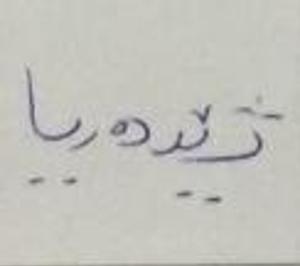 ژێدەریا